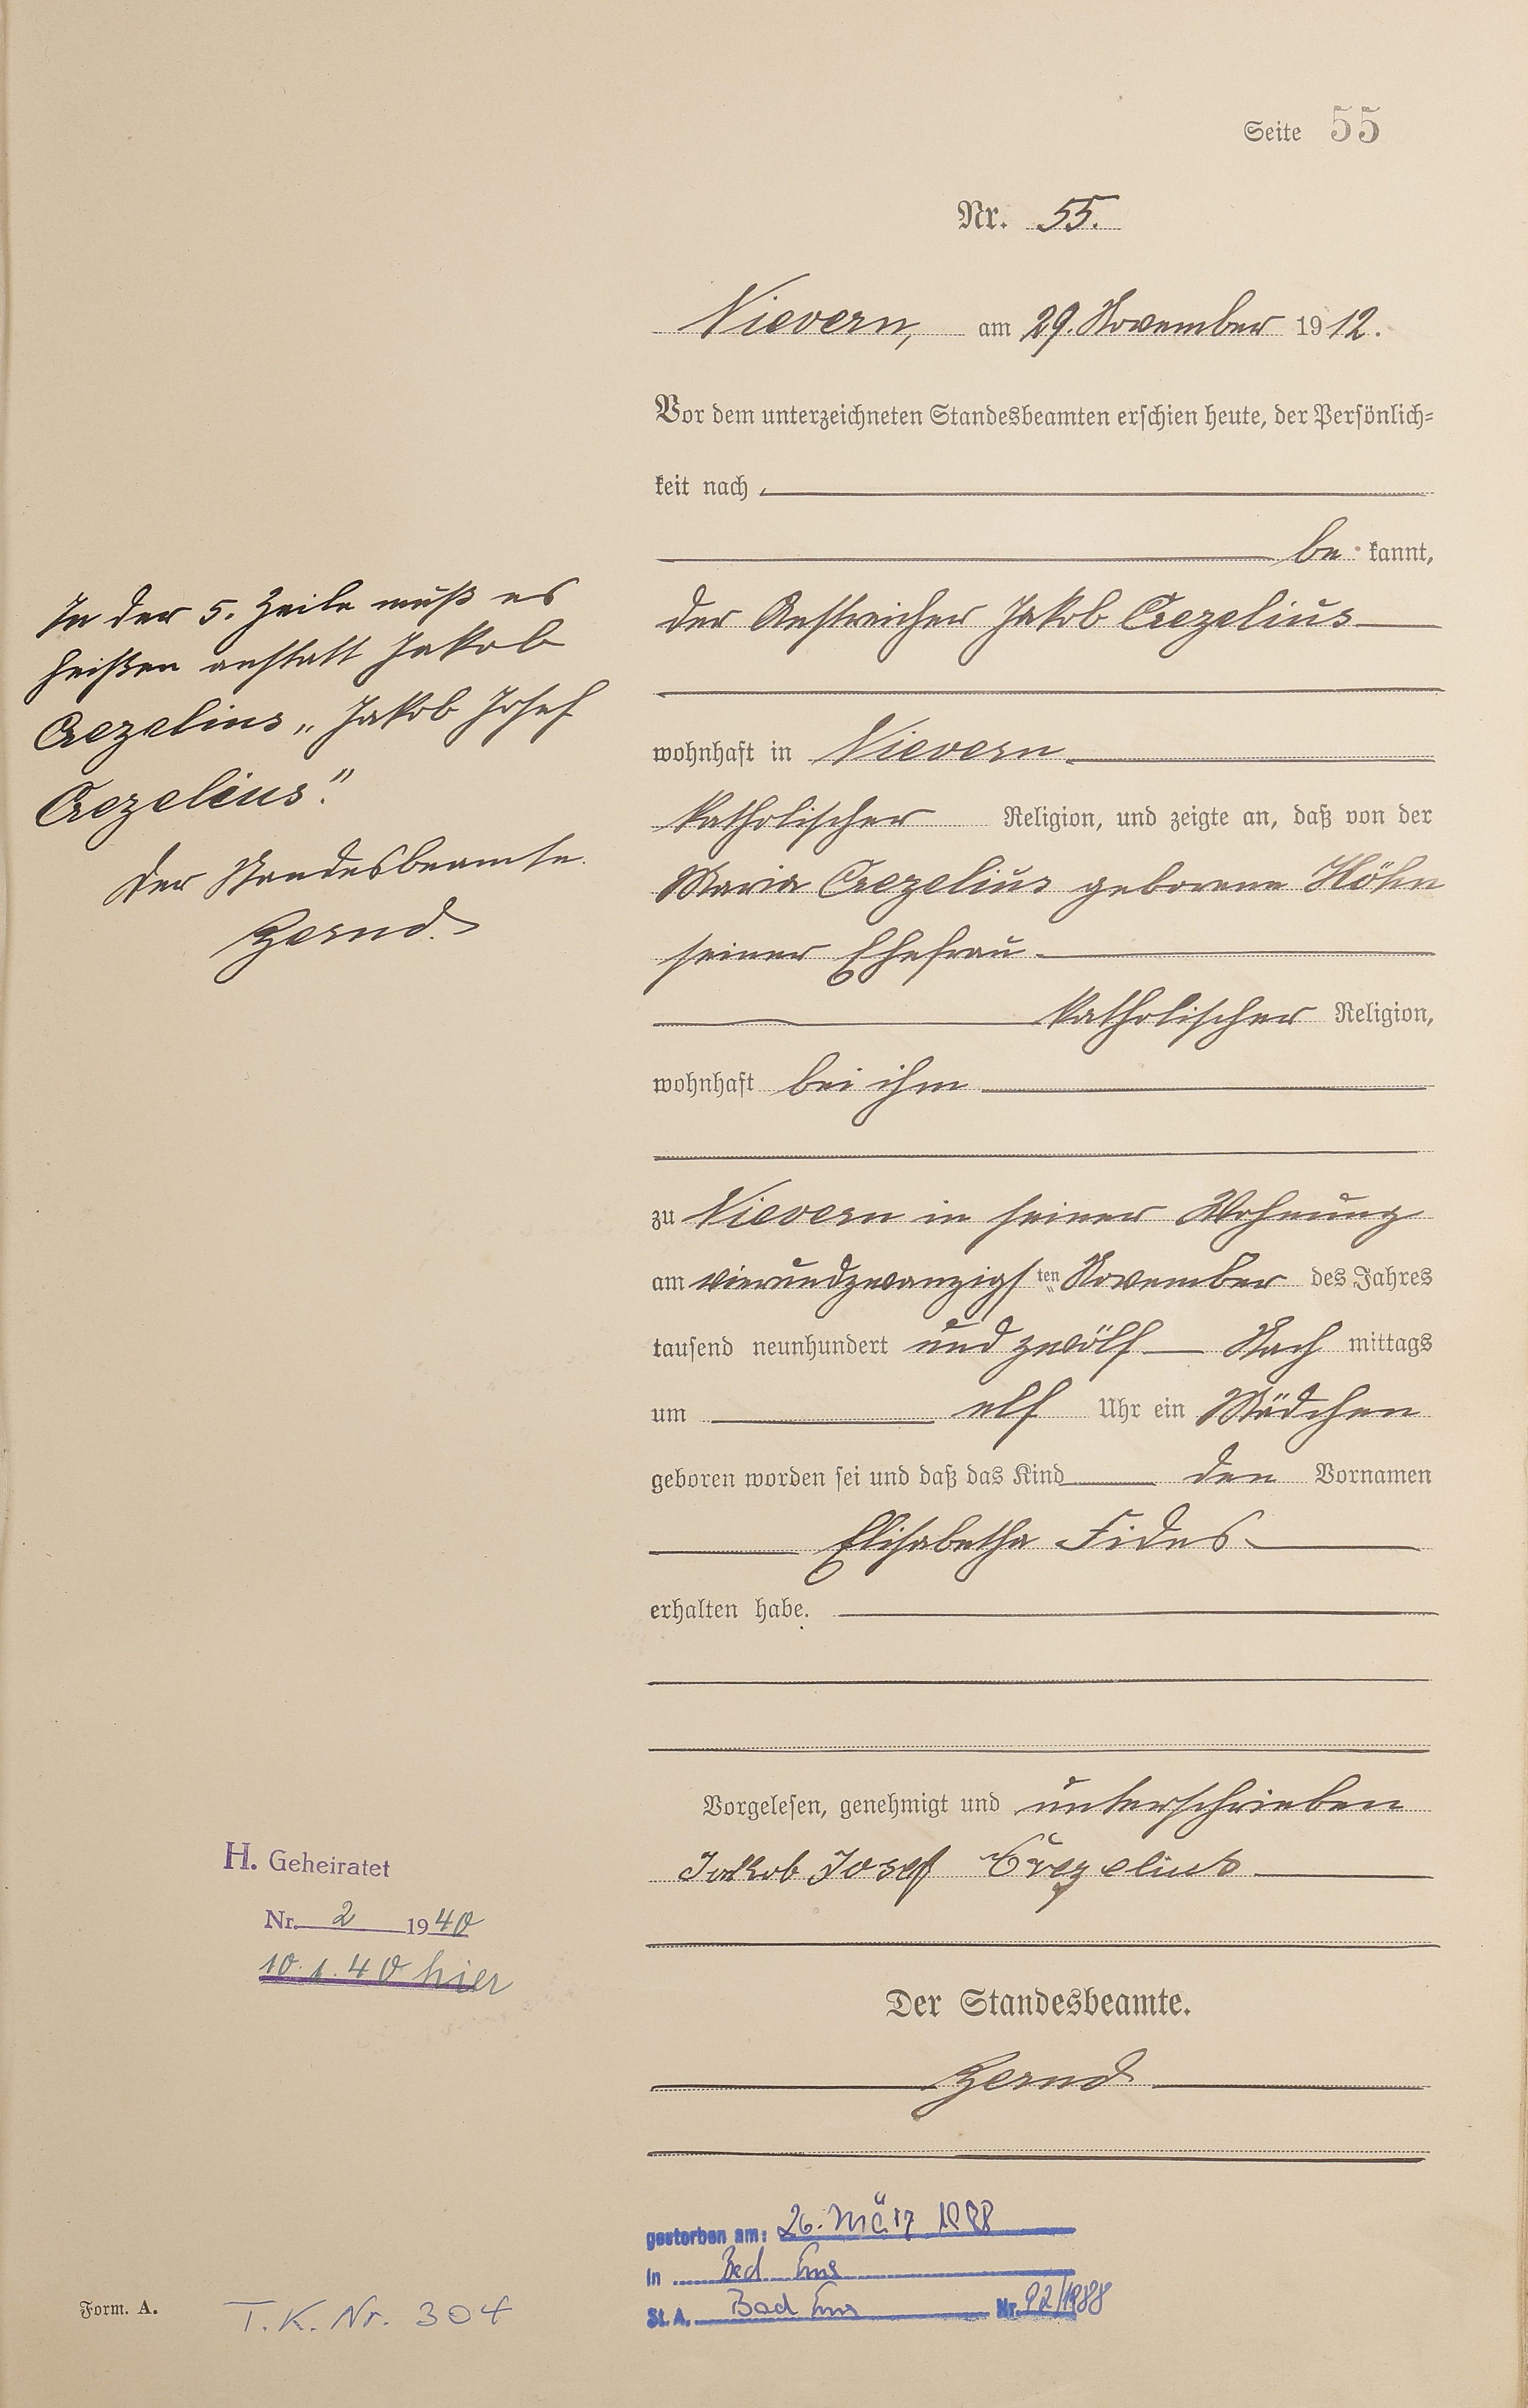 Seite 55
Nr. 55.
Nievern, am 29. November 1912.
Vor dem unterzeichneten Standesbeamten erschien heute, der Persönlich-
keit nach
be kannt,
der Anstreicher Jakob Crezelius
wohnhaft in Nievern
katholischer Religion, und zeigte an, daß von der
Maria Crezelius geborene Höhn
seiner Ehefrau
katholischer Religion,
wohnhaft bei ihm
zu Nievern in seiner Wohnung
am vierundzwanzigsten November des Jahres
tausend neunhundert und zwölf Nach mittags
um elf Uhr ein Mädchen
geboren worden sei und daß das Kind den Vornamen
Elisabetha Fides
erhalten habe.
Vorgelesen, genehmigt und unterschrieben
Jakob Josef Crezelius
Der Standesbeamte.
Zernd
In der 5. Zeile muß es
heißen anstatt Jakob
Crezelius „Jakob Josef
Crezelius."
Der Standesbeamte.
Zernd.
H. Geheiratet
Nr. 2 1940
10.1.40 hier
gestorben am: 26. März 1988
in Bad Ems
St. A. Bad Ems Nr. 92/1988
Form. A.
T. K. Nr. 304